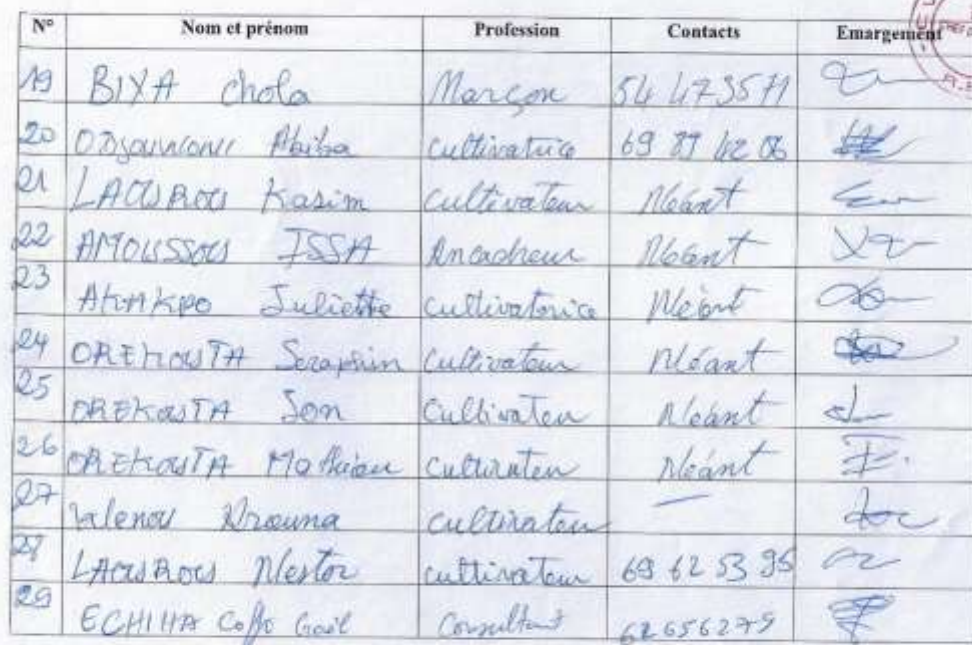 N° Nom et prénom Profession Contacts Emargement
19 BIYA Chola Marçon 54 47 35 71
20 Abiba cultivatrice 69
21 LAOUROU Kasim cultivateur Néant
22 AMOUSSOU ISSA Néant
23 AKAKPO Juliette cultivatorice Néant
24 OREKOUSTA Seraphin cultivateur Néant
25 OREKOUSTA Son cultivateu Néant
26 OREKOUSTA Mathieu cultivateu Néant
27 cultivateur —
28 LAOUROU Nestor cultivateur 69 62 53 95
29 ECHIHA Coffo Gaël Consultant 62656279